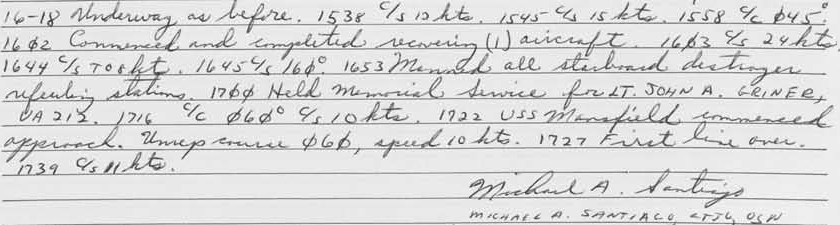 16-18 Underway as before. 1538 C/S 12 kts. 1545 C/S 15 kts. 1558 C/C Ø45°.
16Ø2 Commenced and completed recovering (1) aircraft. 16Ø3 C/S 24 kts.
1644 C/S TO 8 kt. 1645 C/S 16Ø°. 1653 Manned all starboard destroyer
refueling stations. 17ØØ Held Memorial Service for LT. JOHN A. GRINER,
VA 212. 1716 C/C Ø6Ø° C/S 10 kts. 1722 USS Mansfield commenced
approach. Unrep course Ø6Ø, speed 10 kts. 1727 First line over.
1739 C/S 11 kts.
Michael A. Santiago
MICHAEL A. SANTIAGO, LTJG, USN